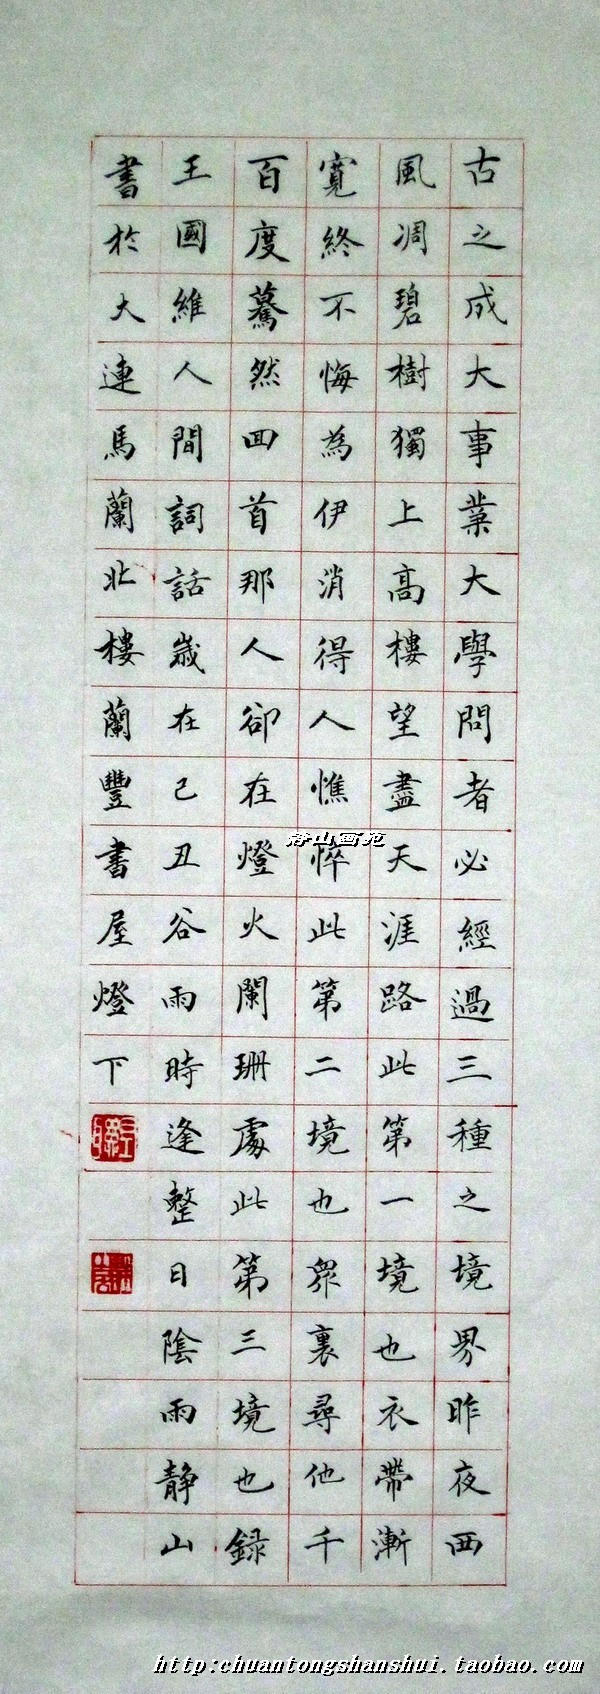 古之成大事業大學問者必經過三種之境界昨夜西
風凋碧樹獨上高樓望盡天涯路此第一境也衣帶漸
寬終不悔為伊消得人憔悴此第二境也眾裏尋他千
百度驀然回首那人卻在燈火闌珊處此第三境也錄
王國維人間詞話歲在己丑谷雨時逢整日陰雨靜山
書於大連馬蘭北樓蘭豐書屋燈下
静山画苑
http:chuantongshanshui.taobao.com